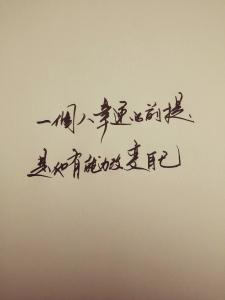 一個人幸運的前提、
是他有能力改變自己